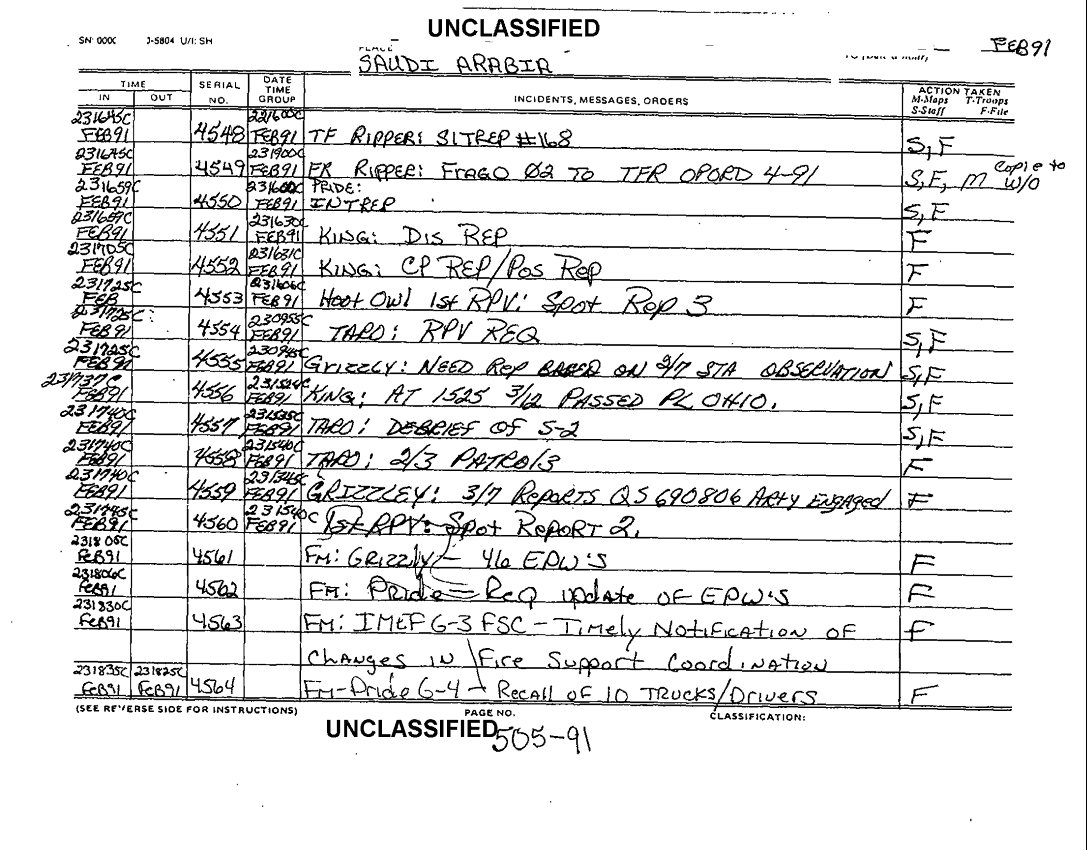 UNCLASSIFIED
SN: 000 J-5804 U/I: SH
PLACE
FEB91
SAUDI ARABIA
TIME SERIAL NO. DATE TIME GROUP INCIDENTS, MESSAGES, ORDERS ACTION TAKEN
IN OUT M-Maps T-Troops
S-Staff F-File
231645C FEB91 4548 221600C FEB91 TF RIPPER: SITREP #168 S,F
231645C FEB91 4549 231900C FEB91 FR RIPPER: FRAGO 02 TO TFR OPORD 4-91 S,F, M Copie to W/O
231659C FEB91 4550 231600C FEB91 PRIDE: INTREP S,F
231659C FEB91 4551 231630C FEB91 KING: DIS REP F
231705C FEB91 4552 231631C FEB91 KING: CP REP/Pos Rep F
231725C FEB 4553 231606C FEB91 Hoot Owl 1st RPV: Spot Rep 3 F
231725C FEB91 4554 230955C FEB91 TARO: RPV REQ S,F
231725C FEB91 4555 230945C FEB91 GRIZZLY: NEED Rep BASED ON 3/7 STA OBSERVATION S,F
231737C FEB91 4556 231524C FEB91 KING: AT 1525 3/12 PASSED PL OHIO. S,F
231740C FEB91 4557 231535C FEB91 TARO: DEBRIEF OF S-2 S,F
231740C FEB91 4558 231540C FEB91 TARO: 2/3 PATROLS F
231740C FEB91 4559 231345C FEB91 GRIZZLEY: 3/7 Reports QS690806 ARTY ENGAGED F
231745C FEB91 4560 231540C FEB91 1st RPV: Spot REPORT 2.
231805C FEB91 4561 FM: GRIZZLY - 46 EPW'S F
231806C FEB91 4562 FM: PRIDE - REQ update OF EPW'S F
231830C FEB91 4563 FM: IMEF G-3 FSC - Timely Notification OF F
Changes IN Fire Support Coordination
231835C FEB91 231825C FEB91 4564 FM-Pride G-4 - Recall of 10 TRUCKS/Drivers F
(SEE REVERSE SIDE FOR INSTRUCTIONS) PAGE NO. CLASSIFICATION:
UNCLASSIFIED 505-91